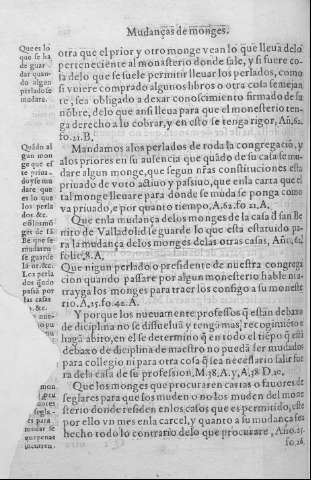 Mudanças de monges.
Que es lo
que se ha
de guar
dar quan-
do algun
perlado se
mudare.
otra que el prior y otro monge vean lo que lleua delo
perteneciente al monasterio donde sale, y si fuere co-
sa delo que se suele permitir lleuar los perlados, como
si vuiere comprado algunos libros o otra cosa semejan
te, sea obligado a dexar conoscimiento firmado de su
nõbre, delo que ansi lleua para que el monesterio ten-
ga derecho a la cobrar, y en esto se tenga rigor, Añ.62.
fo.21.B,
Quãdo al
gun mon
ge que es
te priua-
do y se mu
dare que
es lo que
los perla
dos. &c.
Mandamos alos perlados de toda la congregació, y
alos priores en su ausencia que quãdo de su casa se mu-
dare algun monge, que segun nr̃as constituciones esta
priuado de voto actiuo y passiuo, que enla carta que el
tal monge lleuare para donde se muda se ponga como
va priuado, e por quanto tiempo, A.62.fo 22.A,
Que enla mudança delos monges de la casa d̃ san Be
nito de Valladolid se guarde lo que esta estatuido pa-
ra la mudança delos monges delas otras casas, Año, 62,
folie.8.A,
ge de sã
Be que se
mudaren
se guarde
Que nigun perlado o presidente de nuestra congrega
cion quando passare por algun monesterio hable ni a-
trayga los monges para traer los consigo a su moneste
rio.A,15.fo.40.A.
dos quãdo
passã por
las casas
&c.
Y porque los nueuamente professos q̃ están debaxo
de diciplina no se dissuelua y tengã mas recogimiẽto e
hagã abito, en el se determino q̃ en todo el tiẽpo q̃ está
debaxo de diciplina de maestro no puedã ser mudados
para collegio ni para otra cosa q̃ sea necessario salir fue
ra dela casa de su profession, M.38.A.y,A,18 D.20,
Que los monges que procuraren cartas o fauores de
seglares para que los muden o no los muden del mone
sterio donde residen enlos casos que es permitido, este
por ello vn mes enla carcel, y quanto a su mudança sea
hecho todo lo contrario delo que procurare, Año.25.
mon
segla-
res para
mudar se
que penas
incurren.
fo.26.